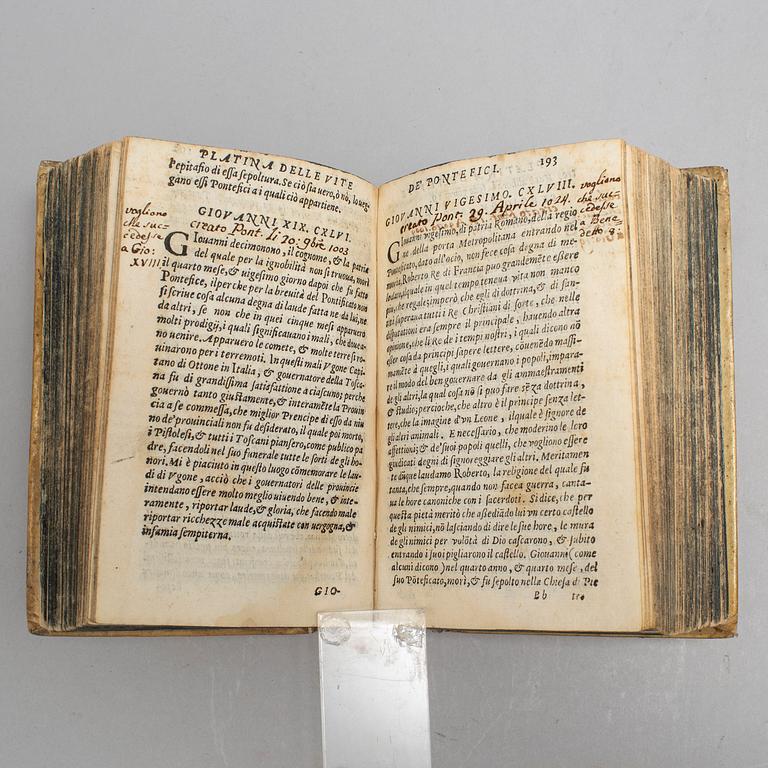 PLATINA DELLE VITE
l'epitafio di essa sepoltura. Se ciò sia uero, ò nò, lo ueg-
gano essi Pontefici a i quali ciò appartiene.
GIOVANNI XIX. CXLVI.
creato Pont. li 20. 9bre 1003
vogliono
che suc-
cedesse
a Gio:
XVIII
GIouanni decimonono, il cognome, & la patria
del quale per la ignobilità non si truoua, morì
il quarto mese, & uigesimo giorno dapoi che fu fatto
Pontefice, ilperche per la breuità del Pontificato non
si scriue cosa alcuna degna di laude fatta ne da lui, ne
da altri, se non che in quei cinque mesi apparuero
molti prodigij, i quali significauano i mali, che doueua-
no uenire. Apparuero le comete, & molte terre si ro-
uinarono per i terremoti. In questi mali Vgone Capi-
tano di Ottone in Italia, & gouernatore della Tosca-
na fu di grandissima satisfattione a ciascuno; perche
gouernò tanto giustamente, & interamẽte la Prouin
cia a se commessa, che miglior Prencipe di esso da niu
no de' prouinciali non fu desiderato, il quale poi morto,
i Pistolesi, & tutti i Toscani piansero, come publico pa
dre, facendoli nel suo funerale tutte le sorti de gli ho-
nori. Mi è piaciuto in questo luogo cõmemorare le lau-
di di Vgone, acciò che i gouernatori delle prouincie
intendano essere molto meglio uiuendo bene, & inte-
ramente, riportar laude, & gloria, che facendo male
riportar ricchezze male acquistate con uergogna, &
infamia sempiterna.
GIO-
DE' PONTEFICI. 193
GIOVANNI VIGESIMO. CXLVIII.
creato Pont. 29. Aprile 1024.
vogliono
che suc-
cedesse
a Bene
detto 8:
GIouanni uigesimo, di patria Romano, della regio
ne della porta Metropolitana entrando nel
Pontificato, dato all'ocio, non fece cosa degna di me-
moria. Roberto Re di Francia puo grandemẽte essere
lodato, ilquale in quel tempo teneua vita non manco
che regale; imperò che egli di dottrina, & di san-
tità superaua tutti i Re Christiani di sorte, che nelle
disputationi era sempre il principale, hauendo altra
opinione, che li Re de i tempi nostri, i quali dicono nõ
esser cosa da principi sapere lettere, cõuenẽdo massi-
mamẽte à quegli, i quali gouernano i popoli, impara-
re il modo del ben gouernare da gli ammaestramenti
de gli altri, la qual cosa nõ si puo fare sẽza dottrina,
& studio; percioche, che altro è il principe senza let-
tere, che la imagine d'vn Leone, ilquale è signore de
gli altri animali. E necessario, che moderino le loro
affettioni; & de' suoi popoli quelli, che vogliono essere
giudicati degni di signoreggiare gli altri. Meritamen
te dũque laudamo Roberto, la religione del quale fu
tanta, che sempre, quando non facea guerra, canta-
ua le hore canoniche con i sacerdoti. Si dice, che per
questa pietà meritò che assediãdo lui vn certo castello
de gli nimici, nõ lasciando di dire le sue hore, le mura
de gli nimici per volõtà di Dio cascarono, & subito
entrando i suoi pigliarono il castello. Giouanni (come
alcuni dicono) nel quarto anno, & quarto mese, del
suo Põteficato, morì, & fu sepolto nella Chiesa di Pie
Bb tro